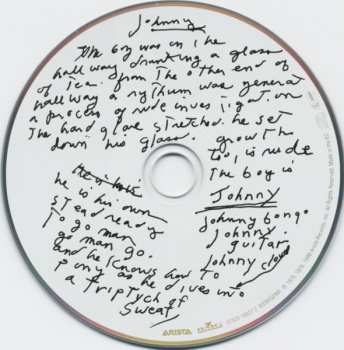 Johnny
The boy was in the
hallway drinking a glass
of tea. From the other end of
hallway a rythum was generat
a process of rude investigation
The hand glove stretched. he set
down his glass. growth
too, is rude
The boy is
Johnny
he is his own
stead ready
to go man
go man go.
and he knows how to
pony as he dives into
a triptych of
sweat
Johnny bongo
Johnny
guitar
Johnny clown
ARISTA